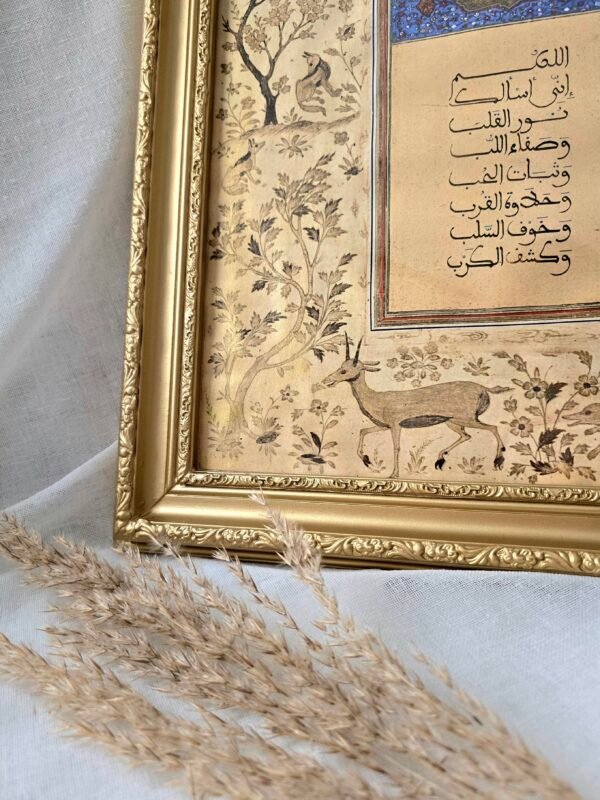 اللهم
إني أسألك
نور القلب
وصفاء اللب
وثبات الحب
وحلاوة القرب
وخوف السلب
وكشف الكرب